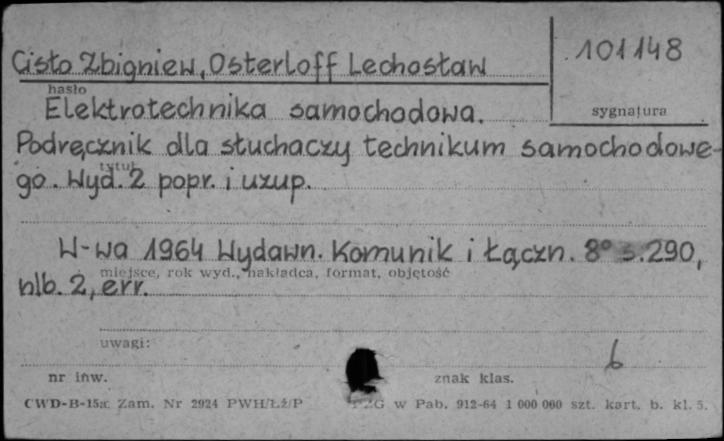 101148
Cisło Zbigniew, Osterloff Lechosław
hasło
sygnatura
Elektrotechnika samochodowa.
Podręcznik dla słuchaczy technikum samochodowe-
tytuł
go. Wyd. 2 popr. i uzup.
W-wa 1964 Wydawn. Komunik i Łączn. 8° s. 290,
miejsce, rok wyd., nakładca, format, objętość
nlb. 2, err.
uwagi:
b
nr inw.
znak klas.
CWD-B-15a. Zam. Nr 2924 PWH/Łź/P
w Pab. 912-64 1 000 000 szt. kart. b. kl. 5.